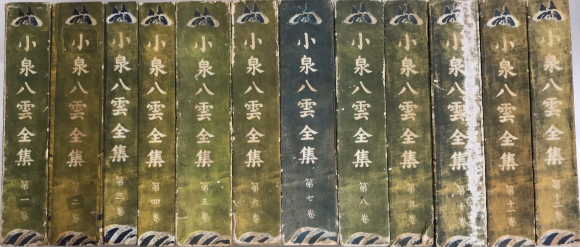 小泉八雲全集 第一卷
小泉八雲全集 第二卷
小泉八雲全集 第三卷
小泉八雲全集 第四卷
小泉八雲全集 第五卷
小泉八雲全集 第六卷
小泉八雲全集 第七卷
小泉八雲全集 第八卷
小泉八雲全集 第九卷
小泉八雲全集
小泉八雲全集 第十一卷
小泉八雲全集 第十二卷